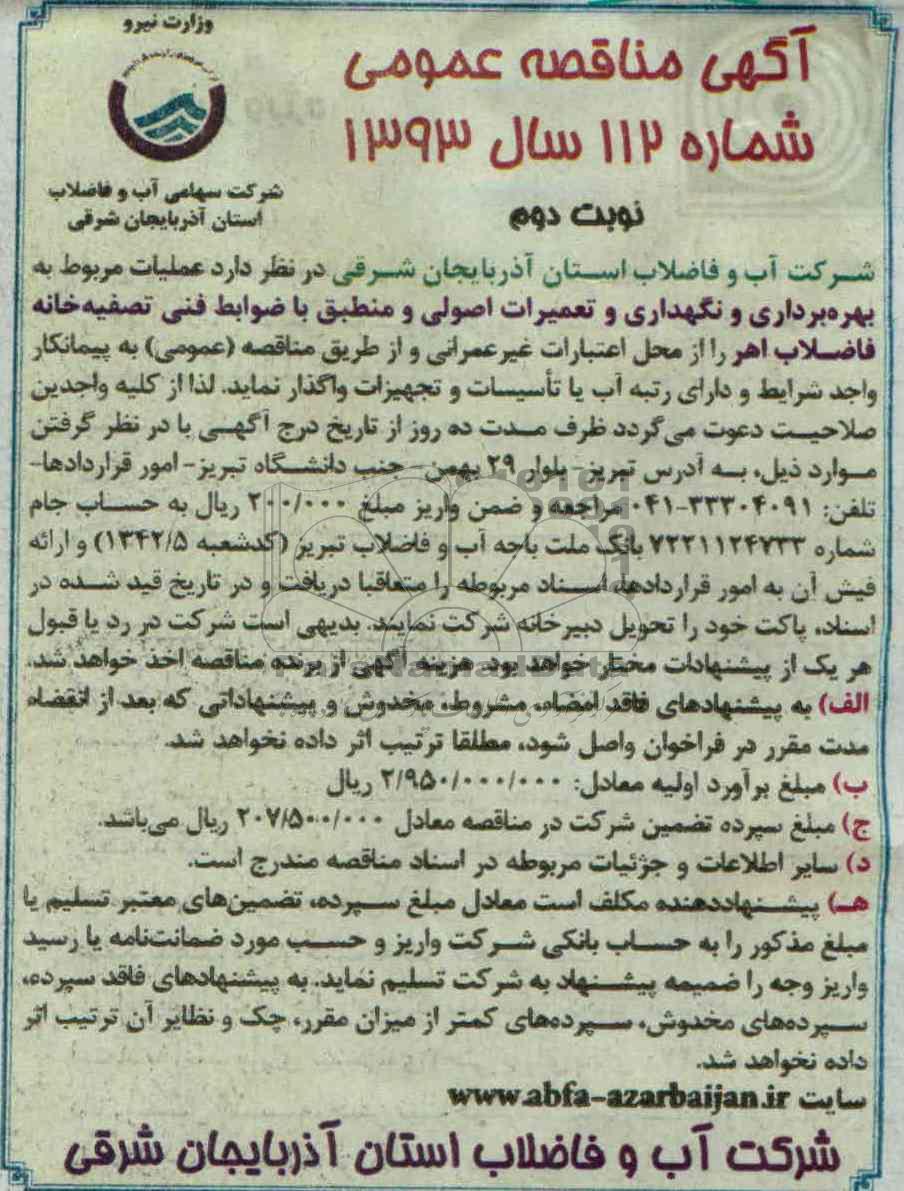 وزارت نیرو
شرکت سهامی آب و فاضلاب
استان آذربایجان شرقی
آگهی مناقصه عمومی
شماره ۱۱۲ سال ۱۳۹۳
نوبت دوم
شرکت آب و فاضلاب استان آذربایجان شرقی در نظر دارد عملیات مربوط به
بهره‌برداری و نگهداری و تعمیرات اصولی و منطبق با ضوابط فنی تصفیه‌خانه
فاضلاب اهر را از محل اعتبارات غیرعمرانی و از طریق مناقصه (عمومی) به پیمانکار
واجد شرایط و دارای رتبه آب یا تأسیسات و تجهیزات واگذار نماید. لذا از کلیه واجدین
صلاحیت دعوت می‌گردد ظرف مدت ده روز از تاریخ درج آگهی با در نظر گرفتن
موارد ذیل، به آدرس تبریز- بلوار ۲۹ بهمن- جنب دانشگاه تبریز- امور قراردادها-
تلفن: ۳۳۳۰۴۰۹۱-۰۴۱ مراجعه و ضمن واریز مبلغ ۲۰۰/۰۰۰ ریال به حساب جام
شماره ۷۲۲۱۱۲۴۷۳۳ بانک ملت باجه آب و فاضلاب تبریز (کدشعبه ۱۳۴۲/۵) و ارائه
فیش آن به امور قراردادها، اسناد مربوطه را متعاقبا دریافت و در تاریخ قید شده در
اسناد، پاکت خود را تحویل دبیرخانه شرکت نمایند. بدیهی است شرکت در رد یا قبول
هر یک از پیشنهادات مختار خواهد بود. هزینه آگهی از برنده مناقصه اخذ خواهد شد.
الف) به پیشنهادهای فاقد امضاء، مشروط، مخدوش و پیشنهاداتی که بعد از انقضاء
مدت مقرر در فراخوان واصل شود، مطلقا ترتیب اثر داده نخواهد شد.
ب) مبلغ برآورد اولیه معادل: ۲/۹۵۰/۰۰۰/۰۰۰ ریال
ج) مبلغ سپرده تضمین شرکت در مناقصه معادل ۲۰۷/۵۰۰/۰۰۰ ریال می‌باشد.
د) سایر اطلاعات و جزئیات مربوطه در اسناد مناقصه مندرج است.
هـ) پیشنهاددهنده مکلف است معادل مبلغ سپرده، تضمین‌های معتبر تسلیم یا
مبلغ مذکور را به حساب بانکی شرکت واریز و حسب مورد ضمانت‌نامه یا رسید
واریز وجه را ضمیمه پیشنهاد به شرکت تسلیم نماید. به پیشنهادهای فاقد سپرده،
سپرده‌های مخدوش، سپرده‌های کمتر از میزان مقرر، چک و نظایر آن ترتیب اثر
داده نخواهد شد.
سایت www.abfa-azarbaijan.ir
شرکت آب و فاضلاب استان آذربایجان شرقی